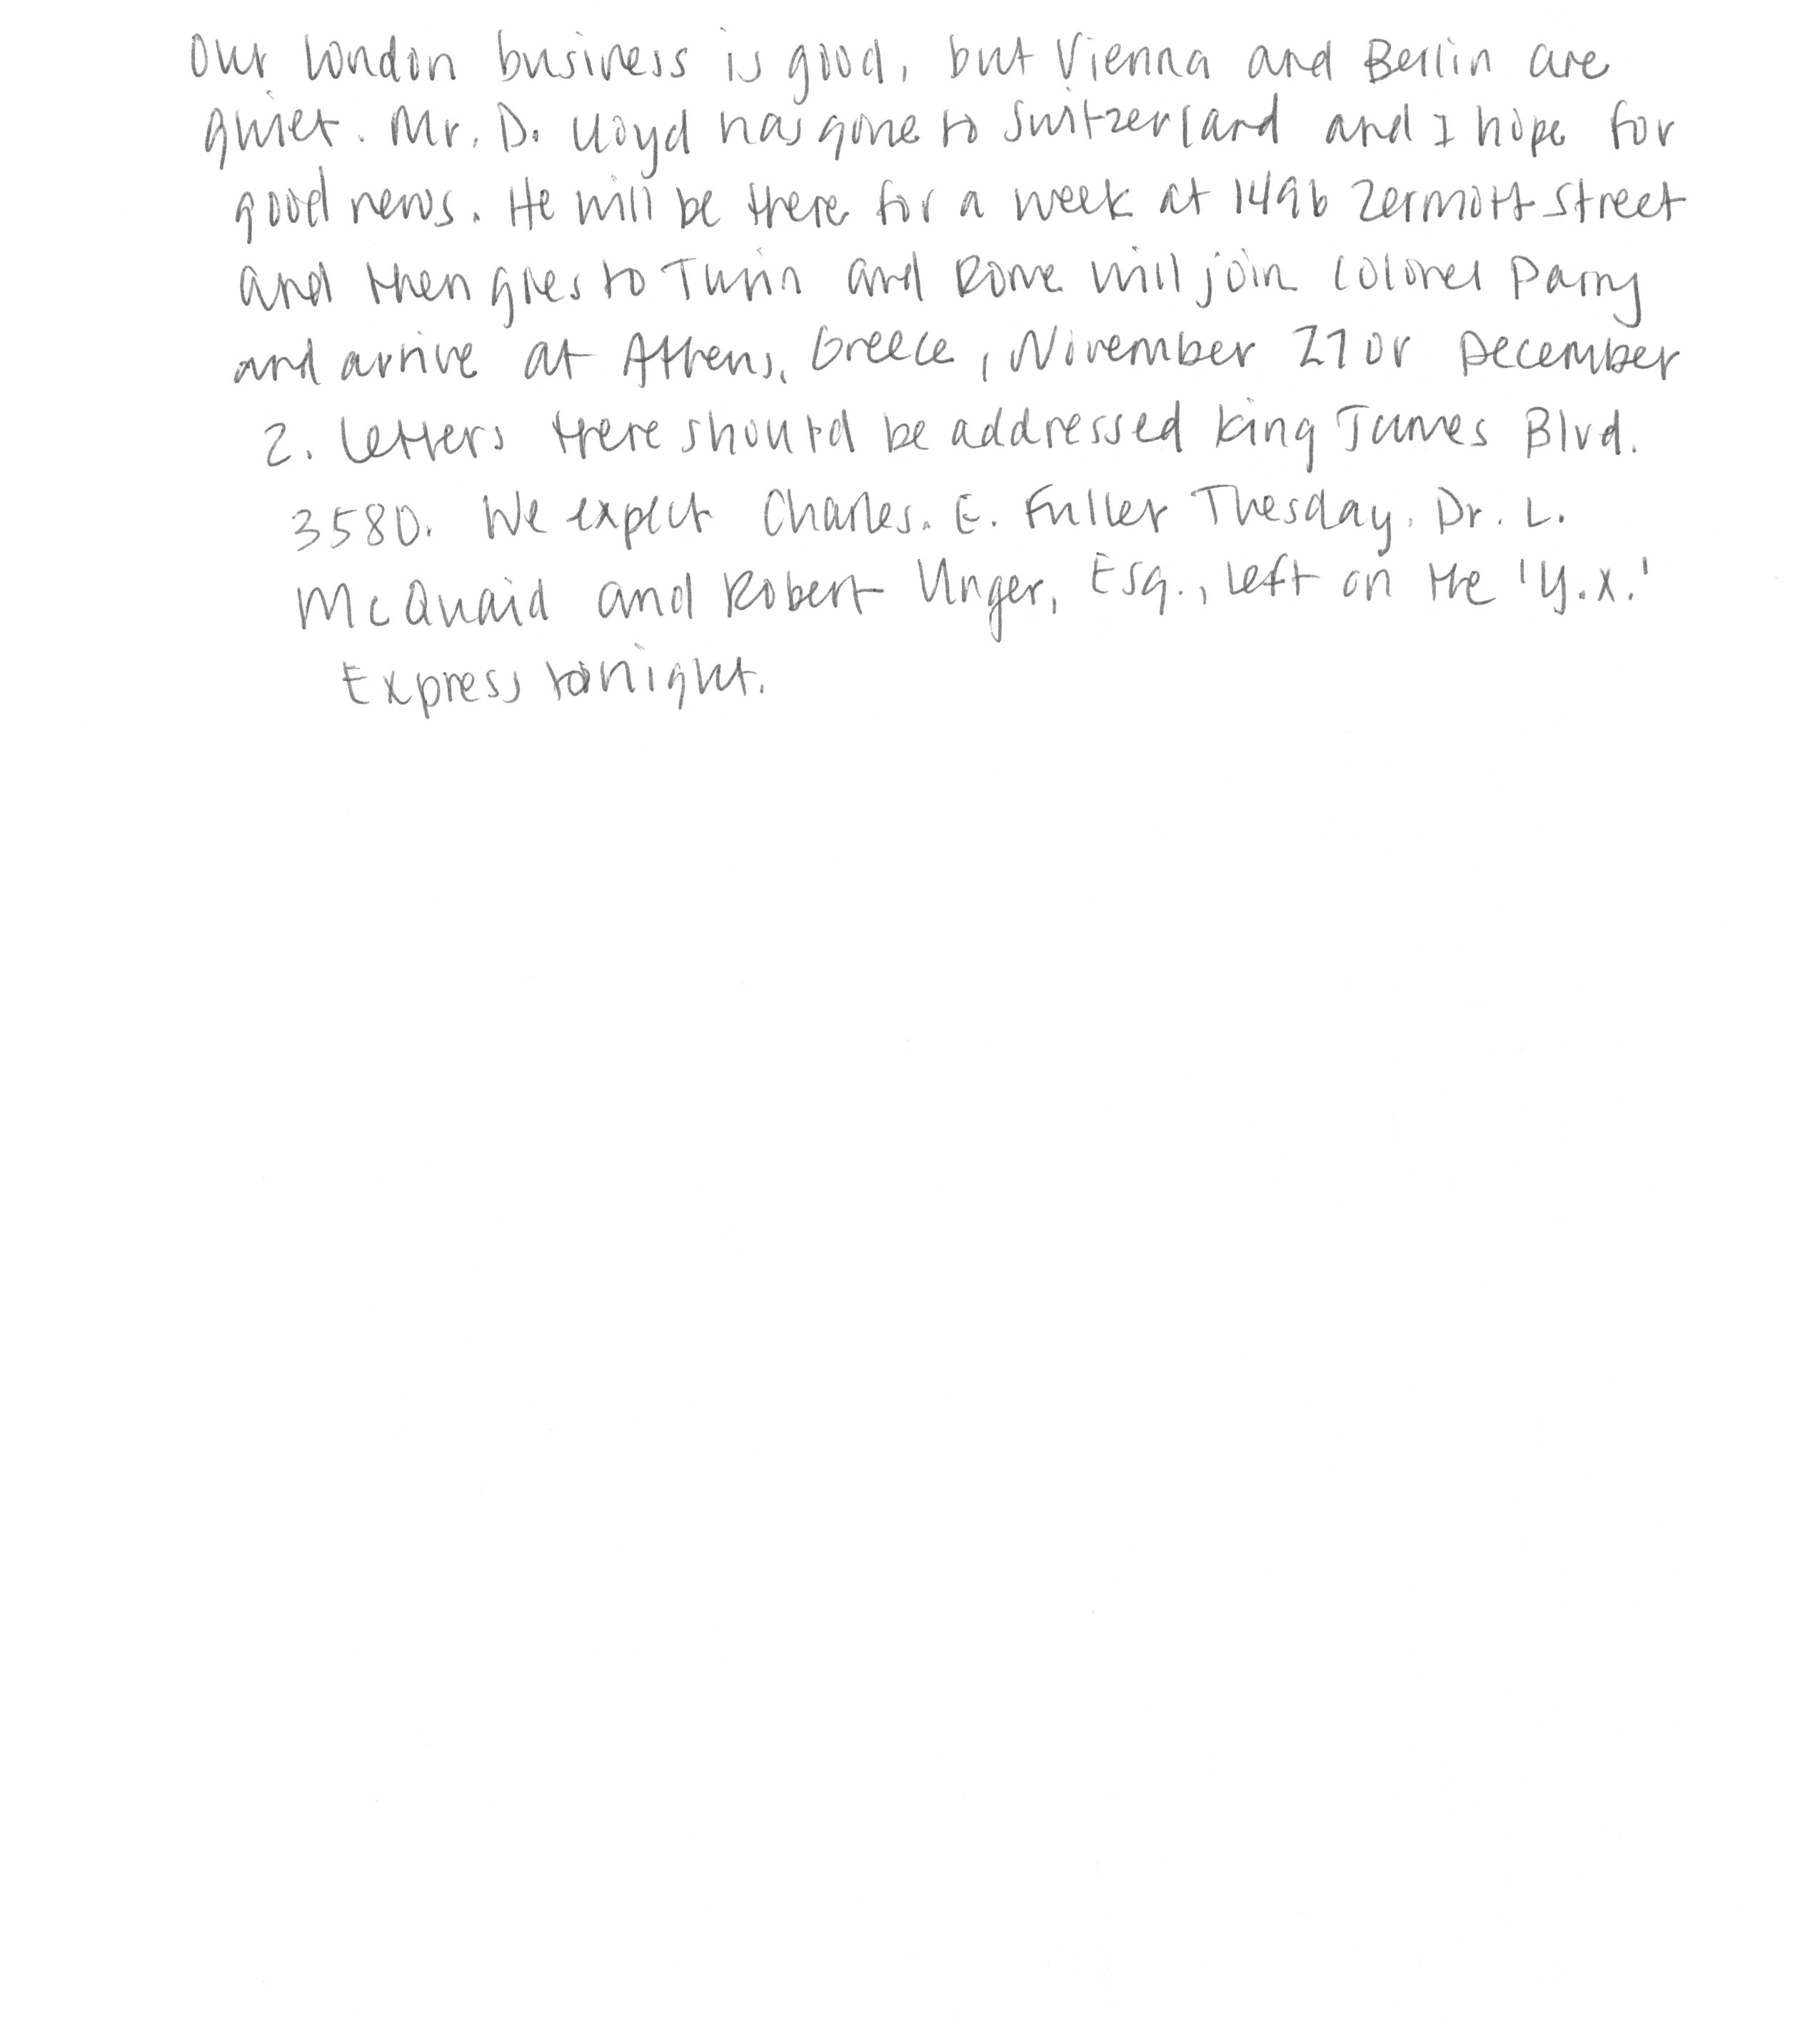 Our London business is good, but Vienna and Berlin are
quiet. Mr. D. Lloyd has gone to Switzerland and I hope for
good news. He will be there for a week at 1496 Zermott Street
and then goes to Turin and Rome will join Colonel Parry
and arrive at Athens, Greece, November 27 or December
2. Letters there should be addressed King James Blvd.
3580. We expect Charles. E. Fuller Tuesday. Dr. L.
McQuaid and Robert Unger, Esq., left on the 'Y.X.'
Express tonight.